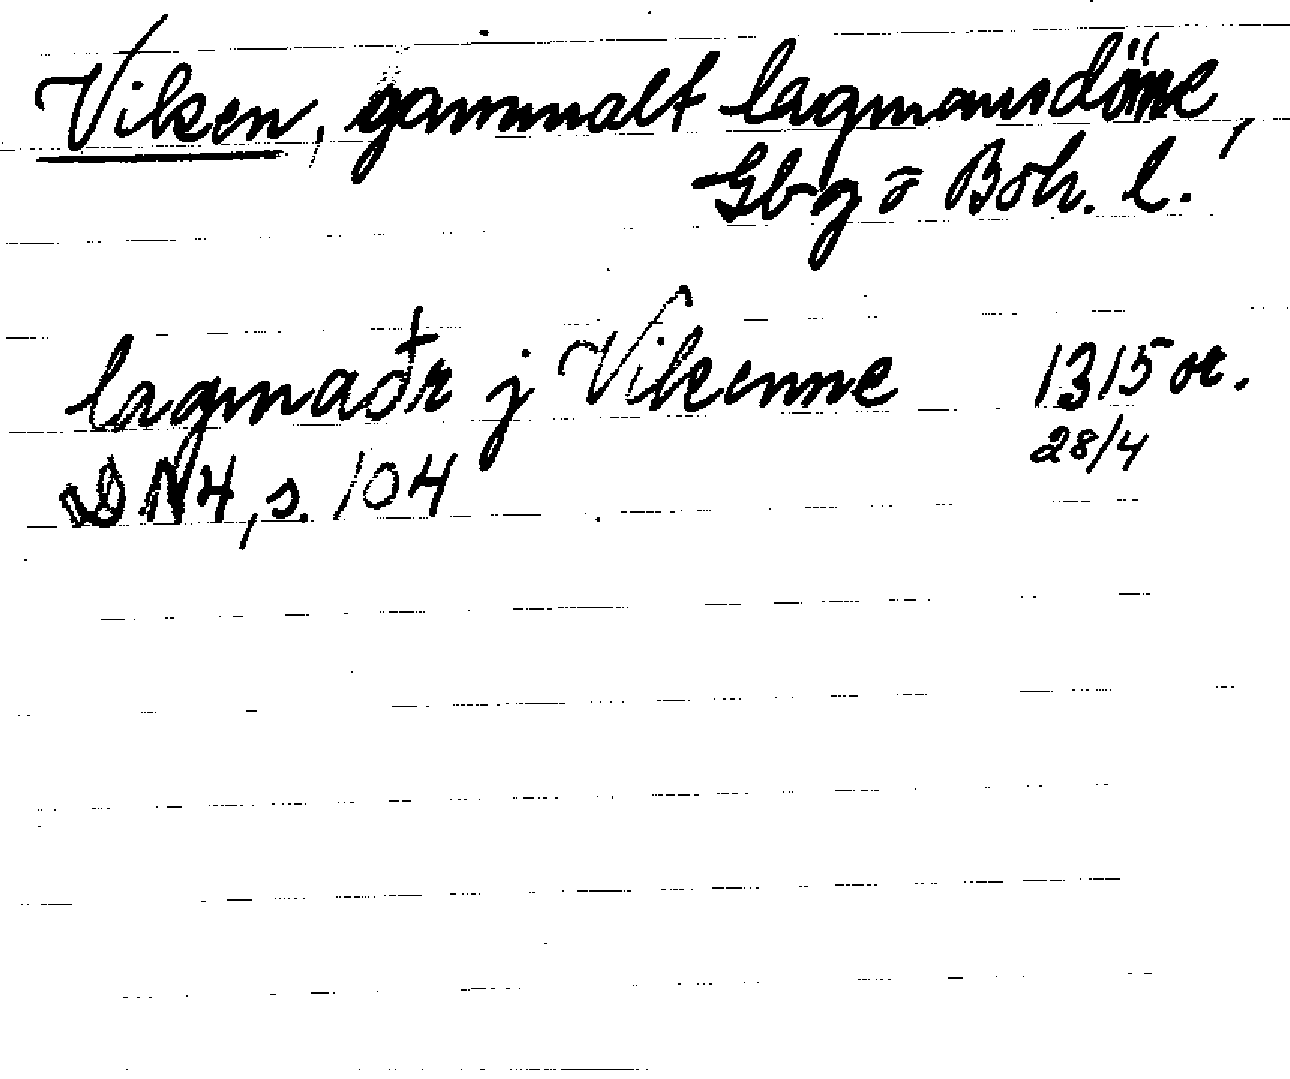 Viken, gammalt lagmansdöme,
Gbg o Boh. l.
lagmaðr j Vikenne 1315 or.
28/4
DN4, s. 104